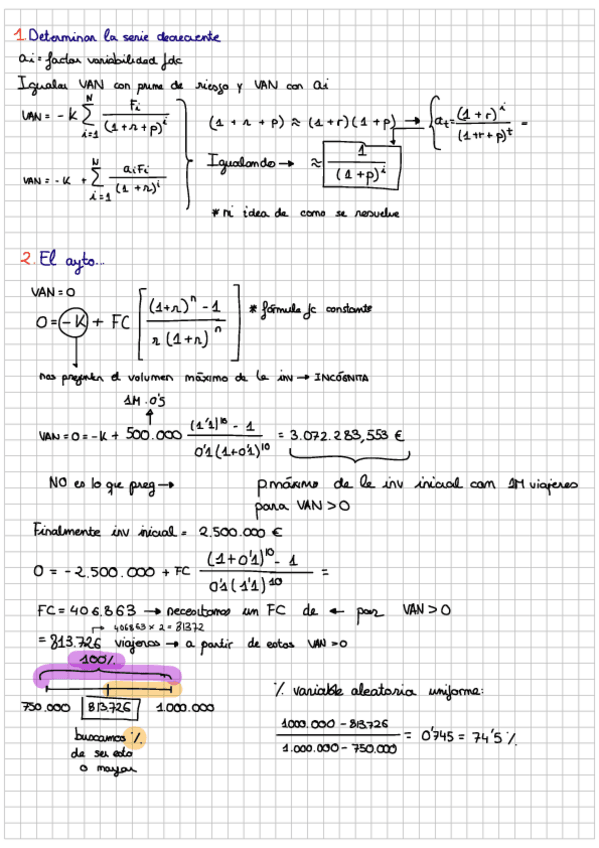 1. Determinar la serie decreciente
ai = factor variabilidad fdc
Igualar VAN con prima de riesgo y VAN con ai
VAN = - K \sum_{i=1}^{N} \frac{Fi}{(1+r+p)^i}
(1 + r + p) ≈ (1+r)(1+p) → { a_t = \frac{(1+r)^i}{(1+r+p)^t} =
Igualando → ≈ \frac{1}{(1+p)^i}
VAN = - K + \sum_{i=1}^{N} \frac{aiFi}{(1+r)^i}
* ni idea de como se resuelve
2. El ayto...
VAN = 0
0 = -K + FC [ \frac{(1+r)^n - 1}{r(1+r)^n} ] * fórmula fc constante
nos preguntan el volumen máximo de la inv → INCÓGNITA
1M . 0'5
VAN = 0 = - K + 500.000 \frac{(1'1)^{10} - 1}{0'1(1+0'1)^{10}} = 3.072.283,553 €
NO es lo que preg → p máximo de la inv inicial com 1M viajeros
para VAN > 0
Finalmente inv inicial = 2.500.000 €
0 = - 2.500.000 + FC \frac{(1+0'1)^{10} - 1}{0'1(1'1)^{10}} =
FC = 406.863 → necesitamos un FC de ← par VAN > 0
406863 × 2 = 81372
= 813.726 viajeros → a partir de estos VAN > 0
100%
750.000 813.726 1.000.000
% variable aleatoria uniforme:
\frac{1000.000 - 813.726}{1.000.000 - 750.000} = 0'745 = 74'5 %
buscamos %
de ser esto
o mayor